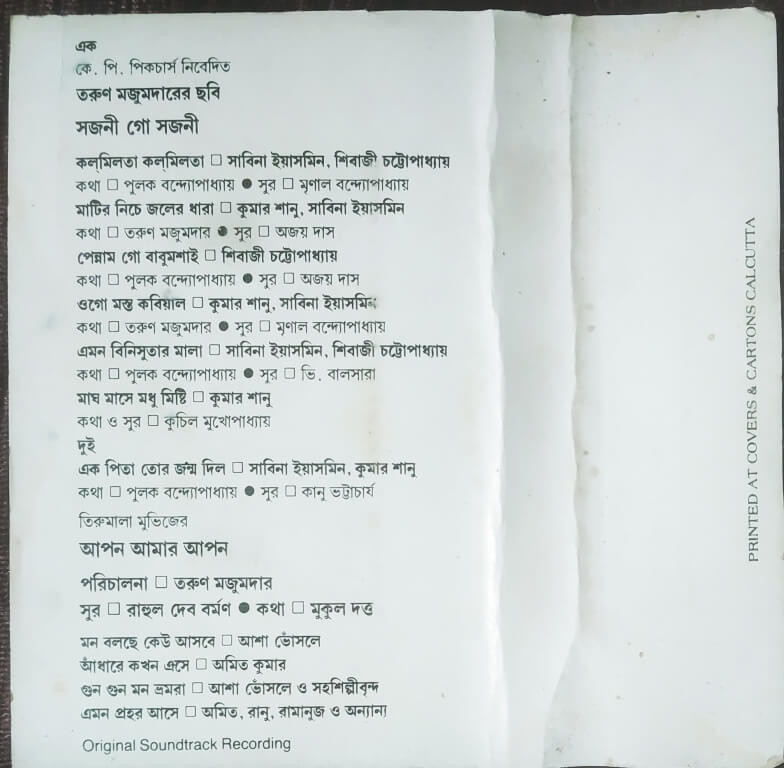 এক
কে. পি. পিকচার্স নিবেদিত
তরুণ মজুমদারের ছবি
সজনী গো সজনী
কল্‌মিলতা কল্‌মিলতা □ সাবিনা ইয়াসমিন, শিবাজী চট্টোপাধ্যায়
কথা □ পুলক বন্দ্যোপাধ্যায় ● সুর □ মৃণাল বন্দ্যোপাধ্যায়
মাটির নিচে জলের ধারা □ কুমার শানু, সাবিনা ইয়াসমিন
কথা □ তরুণ মজুমদার ● সুর □ অজয় দাস
পেন্নাম গো বাবুমশাই □ শিবাজী চট্টোপাধ্যায়
কথা □ পুলক বন্দ্যোপাধ্যায় ● সুর □ অজয় দাস
ওগো মস্ত কবিয়াল □ কুমার শানু, সাবিনা ইয়াসমিন
কথা □ তরুণ মজুমদার ● সুর □ মৃণাল বন্দ্যোপাধ্যায়
এমন বিনিসুতার মালা □ সাবিনা ইয়াসমিন, শিবাজী চট্টোপাধ্যায়
কথা □ পুলক বন্দ্যোপাধ্যায় ● সুর □ ভি. বালসারা
মাঘ মাসে মধু মিষ্টি □ কুমার শানু
কথা ও সুর □ কুচিল মুখোপাধ্যায়
দুই
এক পিতা তোর জন্ম দিল □ সাবিনা ইয়াসমিন, কুমার শানু
কথা □ পুলক বন্দ্যোপাধ্যায় ● সুর □ কানু ভট্টাচার্য
তিরুমালা মুভিজের
আপন আমার আপন
পরিচালনা □ তরুণ মজুমদার
সুর □ রাহুল দেব বর্মণ ● কথা □ মুকুল দত্ত
মন বলছে কেউ আসবে □ আশা ভোঁসলে
আঁধারে কখন এসে □ অমিত কুমার
গুন গুন মন ভ্রমরা □ আশা ভোঁসলে ও সহশিল্পীবৃন্দ
এমন প্রহর আসে □ অমিত, রানু, রামানুজ ও অন্যান্য
Original Soundtrack Recording
PRINTED AT COVERS & CARTONS CALCUTTA